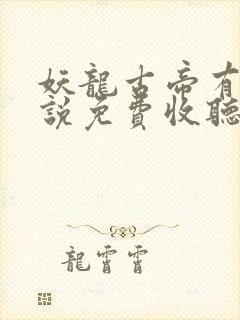 妖龍古帝有
說免費收聽
龍霄霄